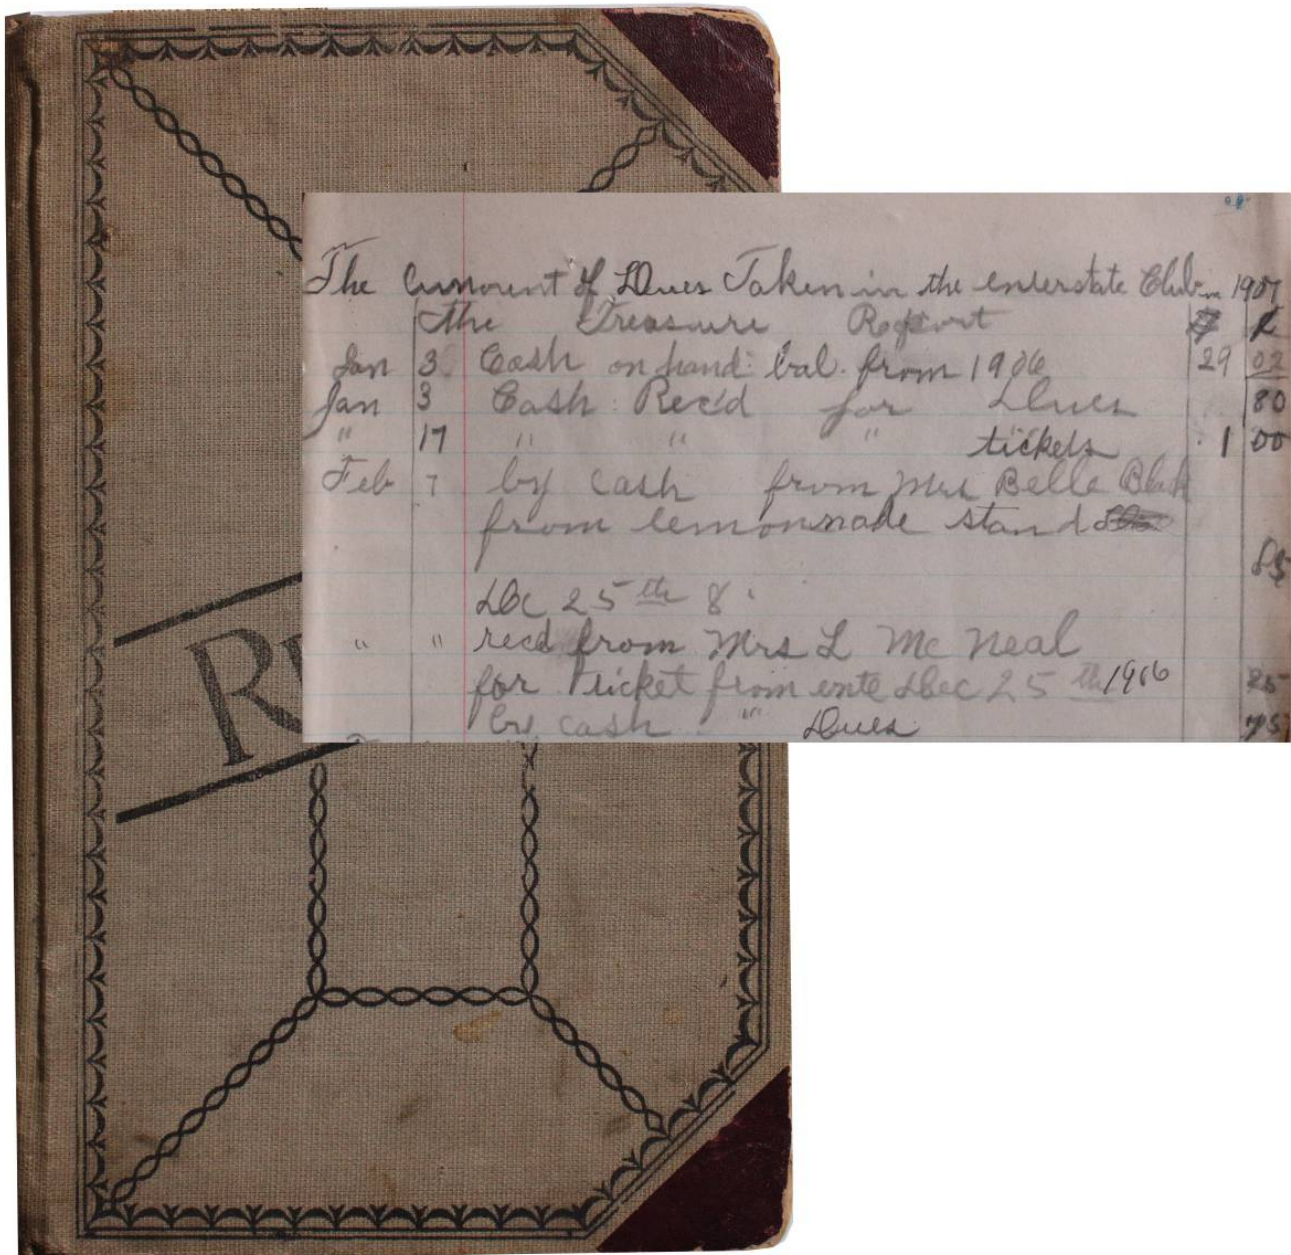 The Ammount of Dues Taken in the enterstate Club in 1907
the Treasure Report $ ¢
Jan 3 Cash on hand bal. from 1906 29 02
Jan 3 Cash Rec'd for Dues 80
" 17 " " " tickets 1 00
Feb 7 by cash from Mrs Belle
from lemonnade stand
85
Dec 25th
" " recd from Mrs L Mc Neal
for ticket from ente Dec 25th 1906 25
by cash " Dues 75
R